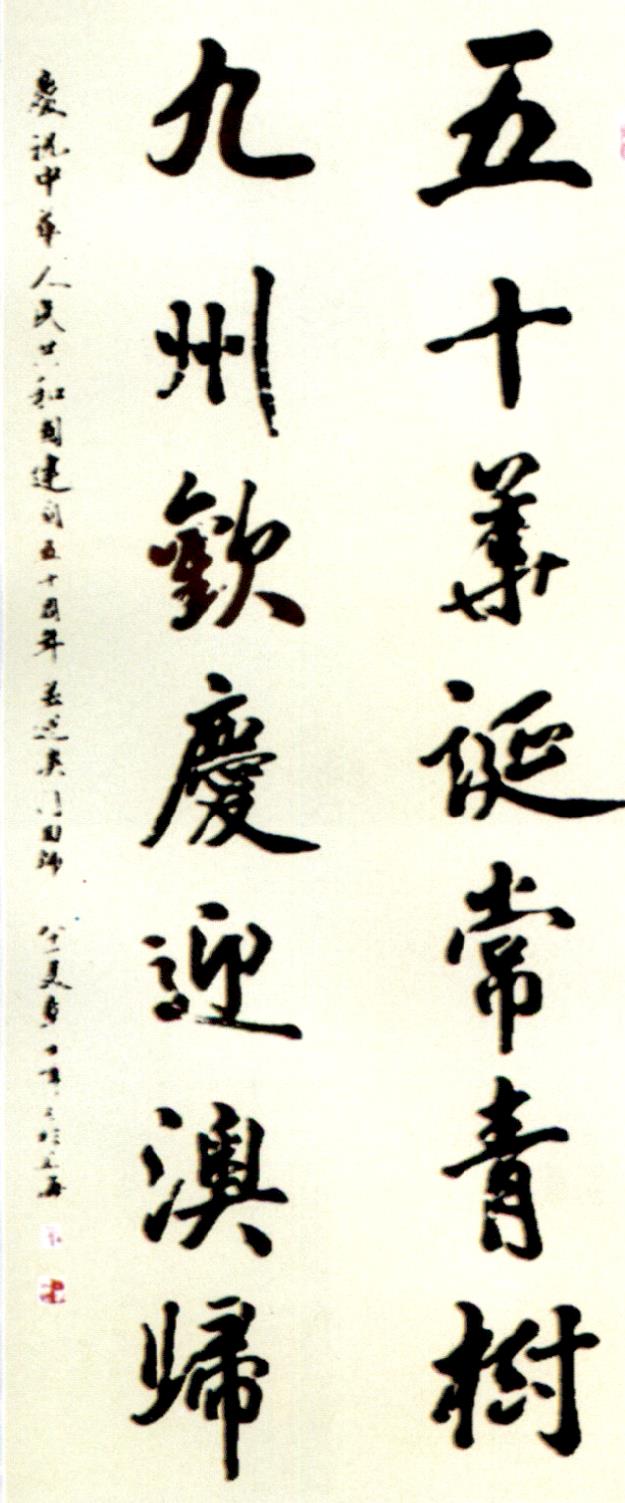 五十華誕常青樹
九州歡慶迎澳歸
慶祝中華人民共和國建國五十周年 並迎澳门回歸 八一叟